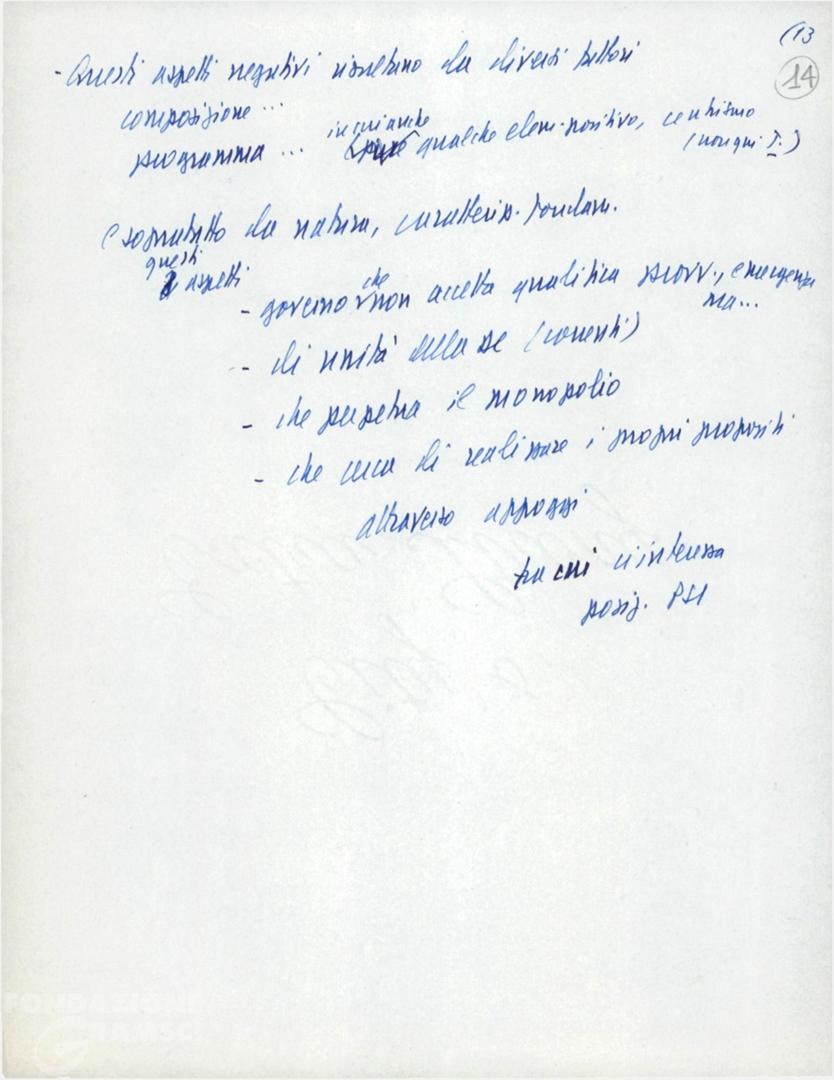 (13
14
- Questi aspetti negativi risultano da diversi fattori
composizione ...
programma ... in cui anche qualche elem. positivo, centrismo
(non qui T.)
e sopratutto da natura, caratteris. fondam.
questi
aspetti
- governo che non accetta qualifica provv., emergenza
ma...
- di unità della DC (correnti)
- che perpetua il monopolio
- che cerca di realizzare i propri propositi
attraverso appoggi
tra cui ci interessa
posiz. PSI
FONDAZIONE
GRAMSCI